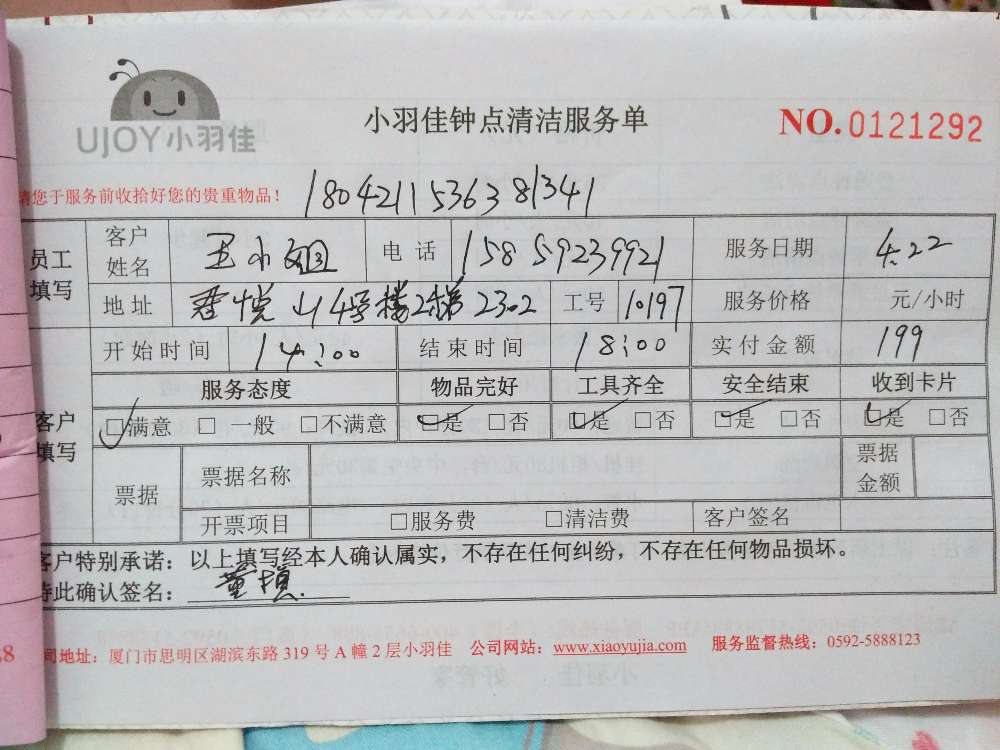 UJOY小羽佳
小羽佳钟点清洁服务单
NO.0121292
请您于服务前收拾好您的贵重物品！
1804211536381341
员工填写 客户姓名 王小姐 电话 15859239921 服务日期 4.22
地址 君悦山4号楼2梯2302 工号 10197 服务价格 元/小时
开始时间 14:00 结束时间 18:00 实付金额 199
客户填写 服务态度 物品完好 工具齐全 安全结束 收到卡片
☑满意 □一般 □不满意 ☑是 □否 ☑是 □否 ☑是 □否 ☑是 □否
票据 票据名称 票据金额
开票项目 □服务费 □清洁费 客户签名
客户特别承诺：以上填写经本人确认属实，不存在任何纠纷，不存在任何物品损坏。
特此确认签名：董
司地址：厦门市思明区湖滨东路 319 号 A 幢 2 层小羽佳 公司网站：www.xiaoyujia.com 服务监督热线：0592-5888123